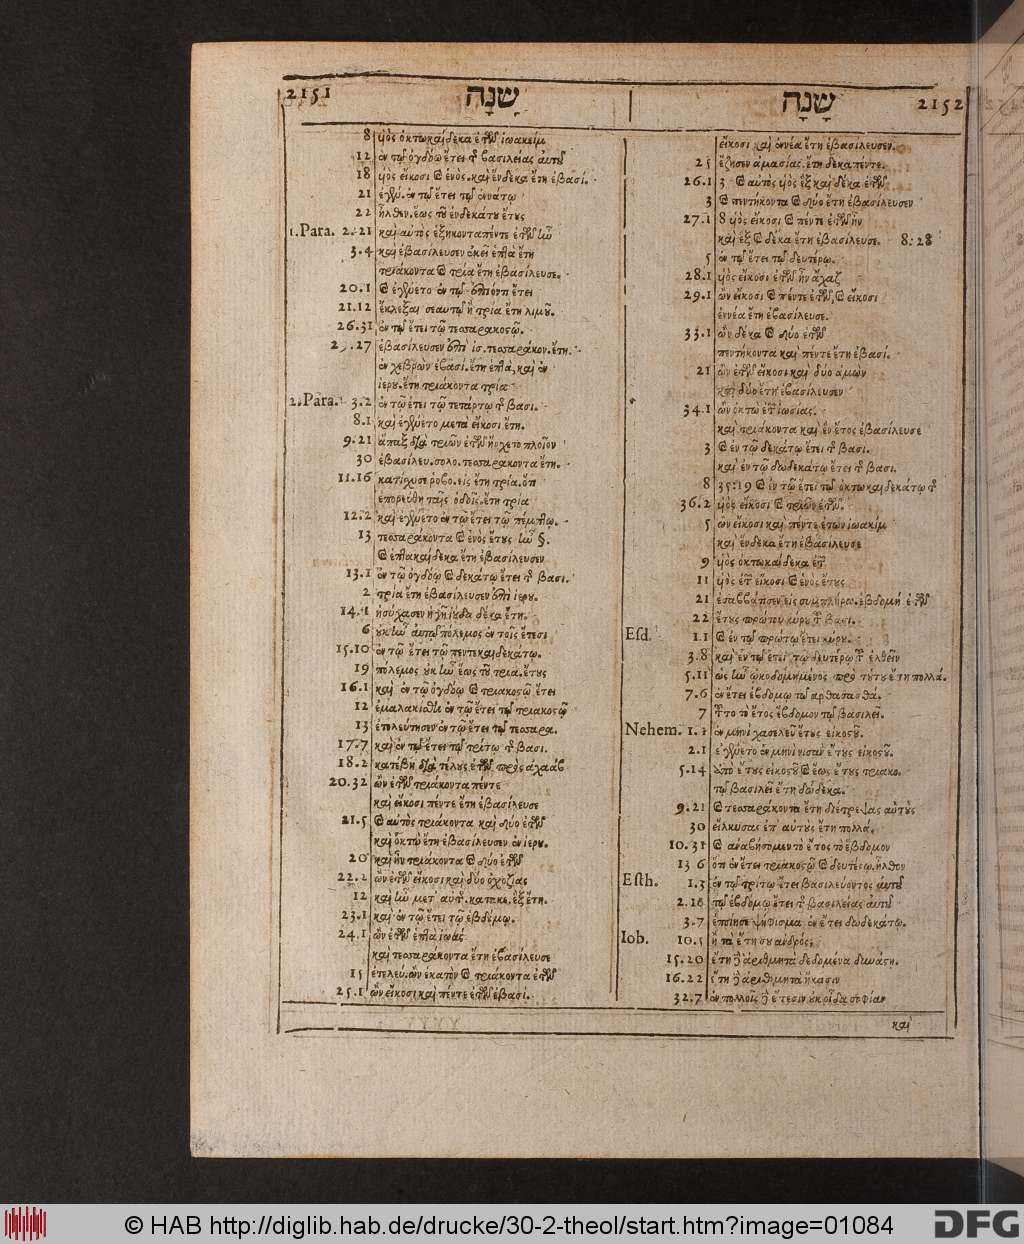 2151 שָׁנָה
8 υἱὸς ὀκτωκαίδεκα ἐτῶν ἰωακεὶμ
12 ἐν τῷ ὀγδόῳ ἔτει τῆς βασιλείας αὐτοῦ
18 υἱὸς εἴκοσι καὶ ἑνός. καὶ ἕνδεκα ἔτη ἐβασί.
21 ἐν τῷ ἔτει τῷ ἐννάτῳ
22 ἦλθεν. ἕως τοῦ ἑνδεκάτου ἔτους
1. Para. 2.21 καὶ αὐτὸς ἑξηκονταπέντε ἐτῶν ἦν
3.4 καὶ ἐβασίλευσεν ἐκεῖ ἑπτὰ ἔτη
τριάκοντα καὶ τρία ἔτη ἐβασίλευσε.
20.1 καὶ ἐγένετο ἐν τῷ ἐπιόντι ἔτει
21.12 ἔκλεξαι σεαυτῷ ἢ τρία ἔτη λιμοῦ.
26.31 ἐν τῷ ἔτει τῷ τεσσαρακοστῷ.
29.27 ἐβασίλευσεν ἐπὶ ἰσ. τεσσαράκον. ἔτη.
ἐν χεβρὼν ἐβασί. ἔτη ἑπτὰ, καὶ ἐν
ἱερου. ἔτη τριάκοντα τρία
2. Para. 3.2 ἐν τῷ ἔτει τῷ τετάρτῳ τῆς βασι.
8.1 καὶ ἐγένετο μετὰ εἴκοσι ἔτη.
9.21 ἅπαξ διὰ τριῶν ἐτῶν ἤρχετο πλοῖον
30 ἐβασίλευ. σολο. τεσσαράκοντα ἔτη.
11.16 κατίσχυσε ῥοβο. εἰς ἔτη τρία. ὅτι
ἐπορεύθη ταῖς ὁδοῖς. ἔτη τρία
12.2 καὶ ἐγένετο ἐν τῷ ἔτει τῷ πέμπτῳ.
13 τεσσαράκοντα καὶ ἑνὸς ἔτους ἦν §.
καὶ ἑπτακαίδεκα ἔτη ἐβασίλευσεν
13.1 ἐν τῷ ὀγδόῳ καὶ δεκάτῳ ἔτει τῆς βασι.
2 τρία ἔτη ἐβασίλευσεν ἐπὶ ἱερου.
14.1 ἡσύχασεν ἡ γῆ ἰούδα δέκα ἔτη.
6 οὐκ ἦν αὐτῷ πόλεμος ἐν τοῖς ἔτεσι
15.10 ἐν τῷ ἔτει τῷ πεντεκαιδεκάτῳ.
19 πόλεμος οὐκ ἦν ἕως τοῦ τρια. ἔτους
16.1 καὶ ἐν τῷ ὀγδόῳ καὶ τριακοστῷ ἔτει
12 ἐμαλακίσθη ἐν τῷ ἔτει τῷ τριακοστῷ
13 ἐτελεύτησεν ἐν τῷ ἔτει τῷ τεσσαρα.
17.7 καὶ ἐν τῷ ἔτει τῷ τρίτῳ τῆς βασι.
18.2 κατέβη διὰ τέλους ἐτῶν πρὸς ἀχαὰβ
20.32 ὢν ἐτῶν τριάκοντα πέντε
καὶ εἴκοσι πέντε ἔτη ἐβασίλευσε
21.5 καὶ αὐτὸς τριάκοντα καὶ δύο ἐτῶν
καὶ ὀκτὼ ἔτη ἐβασίλευσεν ἐν ἱερου.
20 καὶ ἦν τριάκοντα καὶ δύο ἐτῶν
22.2 ὢν ἐτῶν εἴκοσι καὶ δύο ὀχοζίας
12 καὶ ἦν μετ' αὐτῆς κατακε. ἓξ ἔτη.
23.1 καὶ ἐν τῷ ἔτει τῷ ἑβδόμῳ.
24.1 ὢν ἐτῶν ἑπτὰ ἰωὰς
καὶ τεσσαράκοντα ἔτη ἐβασίλευσε
15 ἐτελεύ. ὢν ἑκατὸν καὶ τριάκοντα ἐτῶν
25.1 ὢν εἴκοσι καὶ πέντε ἐτῶν ἐβασί.
שָׁנָה 2152
εἴκοσι καὶ ἐννέα ἔτη ἐβασίλευσεν.
25 ἔζησεν ἀμασίας. ἔτη δεκαπέντε.
26.1 3 καὶ αὐτὸς υἱὸς ἓξ καὶ δέκα ἐτῶν
3 καὶ πεντήκοντα καὶ δύο ἔτη ἐβασίλευσεν
27.1 8 υἱὸς εἴκοσι καὶ πέντε ἐτῶν ἦν
καὶ ἓξ καὶ δέκα ἔτη ἐβασίλευσε. 8. 28
5 ἐν τῷ ἔτει τῷ δευτέρῳ.
28.1 υἱὸς εἴκοσι ἐτῶν ἦν ἄχαζ
29.1 ὢν εἴκοσι καὶ πέντε ἐτῶν, καὶ εἴκοσι
ἐννέα ἔτη ἐβασίλευσε.
33.1 ὢν δέκα καὶ δύο ἐτῶν
πεντήκοντα καὶ πέντε ἔτη ἐβασί.
21 ὢν ἐτῶν εἴκοσι καὶ δύο ἀμὼν
καὶ δύο ἔτη ἐβασίλευσεν
34.1 ὢν ὀκτὼ ἐτῶν ἰωσίας.
καὶ τριάκοντα καὶ ἓν ἔτος ἐβασίλευσε
3 καὶ ἐν τῷ δεκάτῳ ἔτει τῆς βασι.
καὶ ἐν τῷ δωδεκάτῳ ἔτει τῆς βασι.
8 35.19 καὶ ἐν τῷ ἔτει τῷ ὀκτωκαιδεκάτῳ τῆς
36.2 υἱὸς εἴκοσι καὶ τριῶν ἐτῶν.
5 ὢν εἴκοσι καὶ πέντε ἐτῶν ἰωακὶμ
καὶ ἕνδεκα ἔτη ἐβασίλευσε
9 υἱὸς ὀκτωκαίδεκα ἐτῶν
11 υἱὸς ἐτῶν εἴκοσι καὶ ἑνὸς ἔτους
21 ἐσαββάτισεν εἰς συμπλήρω. ἑβδομή ἐτῶν
22 ἔτους πρώτου κύρου τῆς βασι.
Esd. 1.1 καὶ ἐν τῷ πρώτῳ ἔτει κύρου.
3.8 καὶ ἐν τῷ ἔτει τῷ δευτέρῳ τοῦ ἐλθεῖν
5.11 ὡς ἦν ᾠκοδομημένος πρὸ τούτου ἔτη πολλά.
7.6 ἐν ἔτει ἑβδόμῳ τῷ αρθασασθά.
7 τοῦτο τὸ ἔτος ἕβδομον τῷ βασιλεῖ.
Nehem. 1.1 ἐν μηνὶ χασελεῦ ἔτους εἰκοστοῦ.
2.1 ἐγένετο ἐν μηνὶ νισὰν ἔτους εἰκοστοῦ.
5.14 ἀπὸ ἔτους εἰκοστοῦ καὶ ἕως ἔτους τριακο.
τῷ βασιλεῖ ἔτη δώδεκα.
9.21 καὶ τεσσαράκοντα ἔτη διέτρεψας αὐτοὺς
30 εἵλκυσας ἐπ' αὐτοὺς ἔτη πολλά.
10.31 καὶ ἀναβήσομεν τὸ ἔτος τὸ ἕβδομον
13 6 ὅτι ἐν ἔτει τριακοστῷ καὶ δευτέρῳ. ἦλθον
Esth. 1.3 ἐν τῷ τρίτῳ ἔτει βασιλεύοντος αὐτοῦ
2.16 τῷ ἑβδόμῳ ἔτει τῆς βασιλείας αὐτοῦ
3.7 ἐποίησε ψήφισμα ἐν ἔτει δωδεκάτῳ.
Iob. 10.5 ἢ τὰ ἔτη σου ἀνδρός;
15.20 ἔτη δὲ ἀριθμητὰ δεδομένα δυνάστῃ.
16.22 ἔτη δὲ ἀριθμητὰ ἥκασιν
32.7 ἐν πολλοῖς δὲ ἔτεσιν οὐκ οἶδα σοφίαν
καὶ
© HAB http://diglib.hab.de/drucke/30-2-theol/start.htm?image=01084
DFG